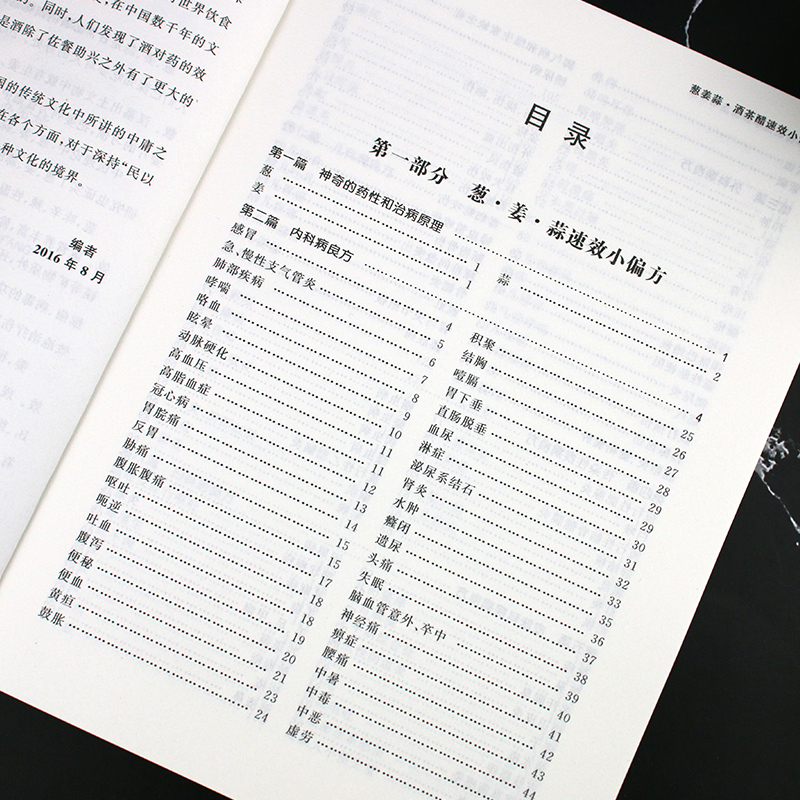 世界饮食
在中国数千年的文
的。同时,人们发现了酒对药的效
是酒除了佐餐助兴之外有了更大的
国的传统文化中所讲的中庸之
在各个方面,对于深持“民以
种文化的境界。
编者
2016 年 8 月
葱姜蒜·酒茶醋速效小
目录
第一部分 葱·姜·蒜速效小偏方
第一篇 神奇的药性和治病原理 1
葱 1
姜 1
蒜 2
第二篇 内科病良方 4
感冒 4
急、慢性支气管炎 5
肺部疾病 6
哮喘 7
咯血 8
眩晕 9
动脉硬化 10
高血压 11
高脂血症 11
冠心病 12
胃脘痛 13
反胃 14
胁痛 15
腹胀腹痛 15
呕吐 17
呃逆 18
吐血 18
腹泻 19
便秘 20
便血 21
黄疸 23
鼓胀 24
积聚 25
结胸 26
噎膈 27
胃下垂 28
直肠脱垂 29
血尿 29
淋症 30
泌尿系结石 31
肾炎 32
水肿 33
癃闭 35
遗尿 36
头痛 37
失眠 38
脑血管意外、卒中 39
神经痛 40
痹症 41
腰痛 42
中暑 43
中毒 44
中恶
虚劳